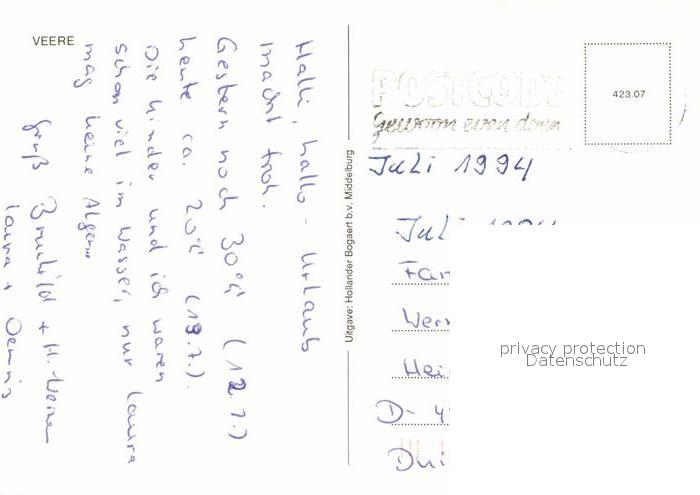 VEERE
Halli, hallo - Urlaub
macht froh.
Gestern noch 30°C (12.7.)
heute ca. 20°C (13.7.).
Die Kinder und ich waren
schon viel im Wasser, nur Laura
mag keine Algen.
Gruß Brunhild + H.
Laura + Dennis
Uitgave: Hollander Bogaert b.v. Middelburg
POSTCODE
Gewoon even doen
423.07
Juli 1994
Jul
Fam
Wern
Hei
D- 4
Dui
privacy protection
Datenschutz